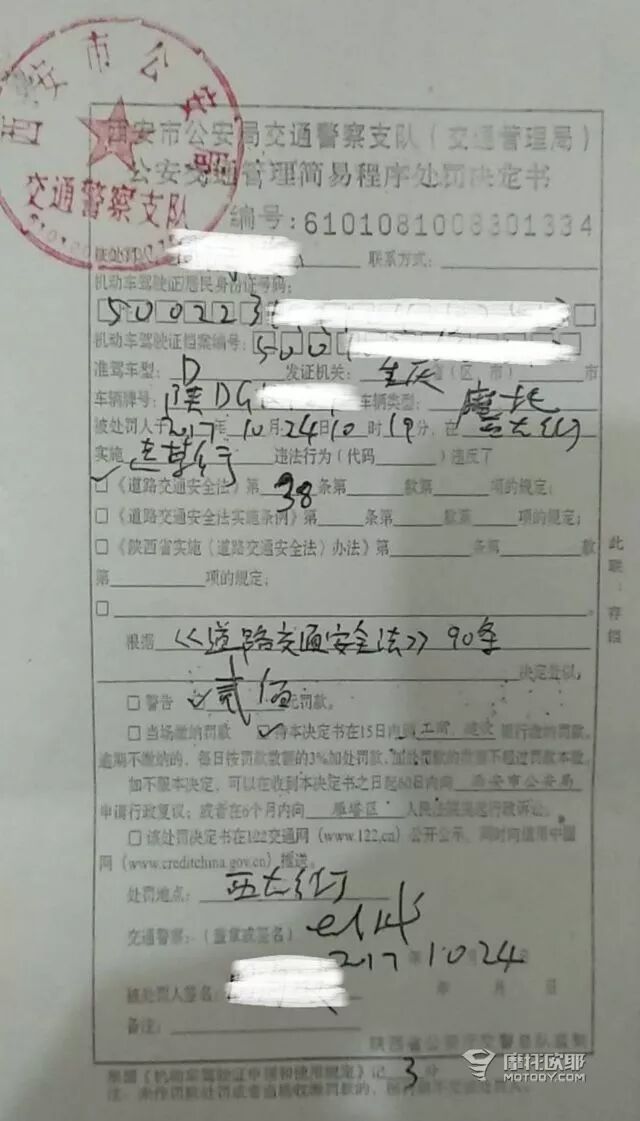 西安市公安局
交通警察支队
西安市公安局交通警察支队（交通管理局）
公安交通管理简易程序处罚决定书
编号:6101081008301334
被处罚人: 联系方式:
机动车驾驶证/居民身份证号码:
500223
机动车驾驶证档案编号: 500
准驾车型: D 发证机关: 重庆 省（区、市） 市
车辆牌号: 陕DG 车辆类型: 摩托
被处罚人于2017年10月24日10时19分，在
实施 违法行为（代码 ）违反了
□《道路交通安全法》第38条第 款第 项的规定;
□《道路交通安全法实施条例》第 条第 款第 项的规定;
□《陕西省实施〈道路交通安全法〉办法》第 条第 款
第 项的规定;
□
根据 《道路交通安全法》90条
决定处以:
□警告 ✓贰佰元罚款。
□当场缴纳罚款 ✓持本决定书在15日内到 工商、建设 银行缴纳罚款。
逾期不缴纳的，每日按罚款数额的3%加处罚款，加处罚款的数额不超过罚款本数。
如不服本决定，可以在收到本决定书之日起60日内向 西安市公安局
申请行政复议；或者在6个月内向 雁塔区 人民法院提起行政诉讼。
□该处罚决定书在122交通网（www.122.cn）公开公示，同时向信用中国
网（www.creditchina.gov.cn）推送。
处罚地点:
交通警察:（盖章或签名）
2017年10 24
被处罚人签名: 年 月 日
备注:
陕西省公安厅交警总队监制
根据《机动车驾驶证申领和使用规定》记 3 分
此联:存档
摩托欧耶
MOTOOY.COM